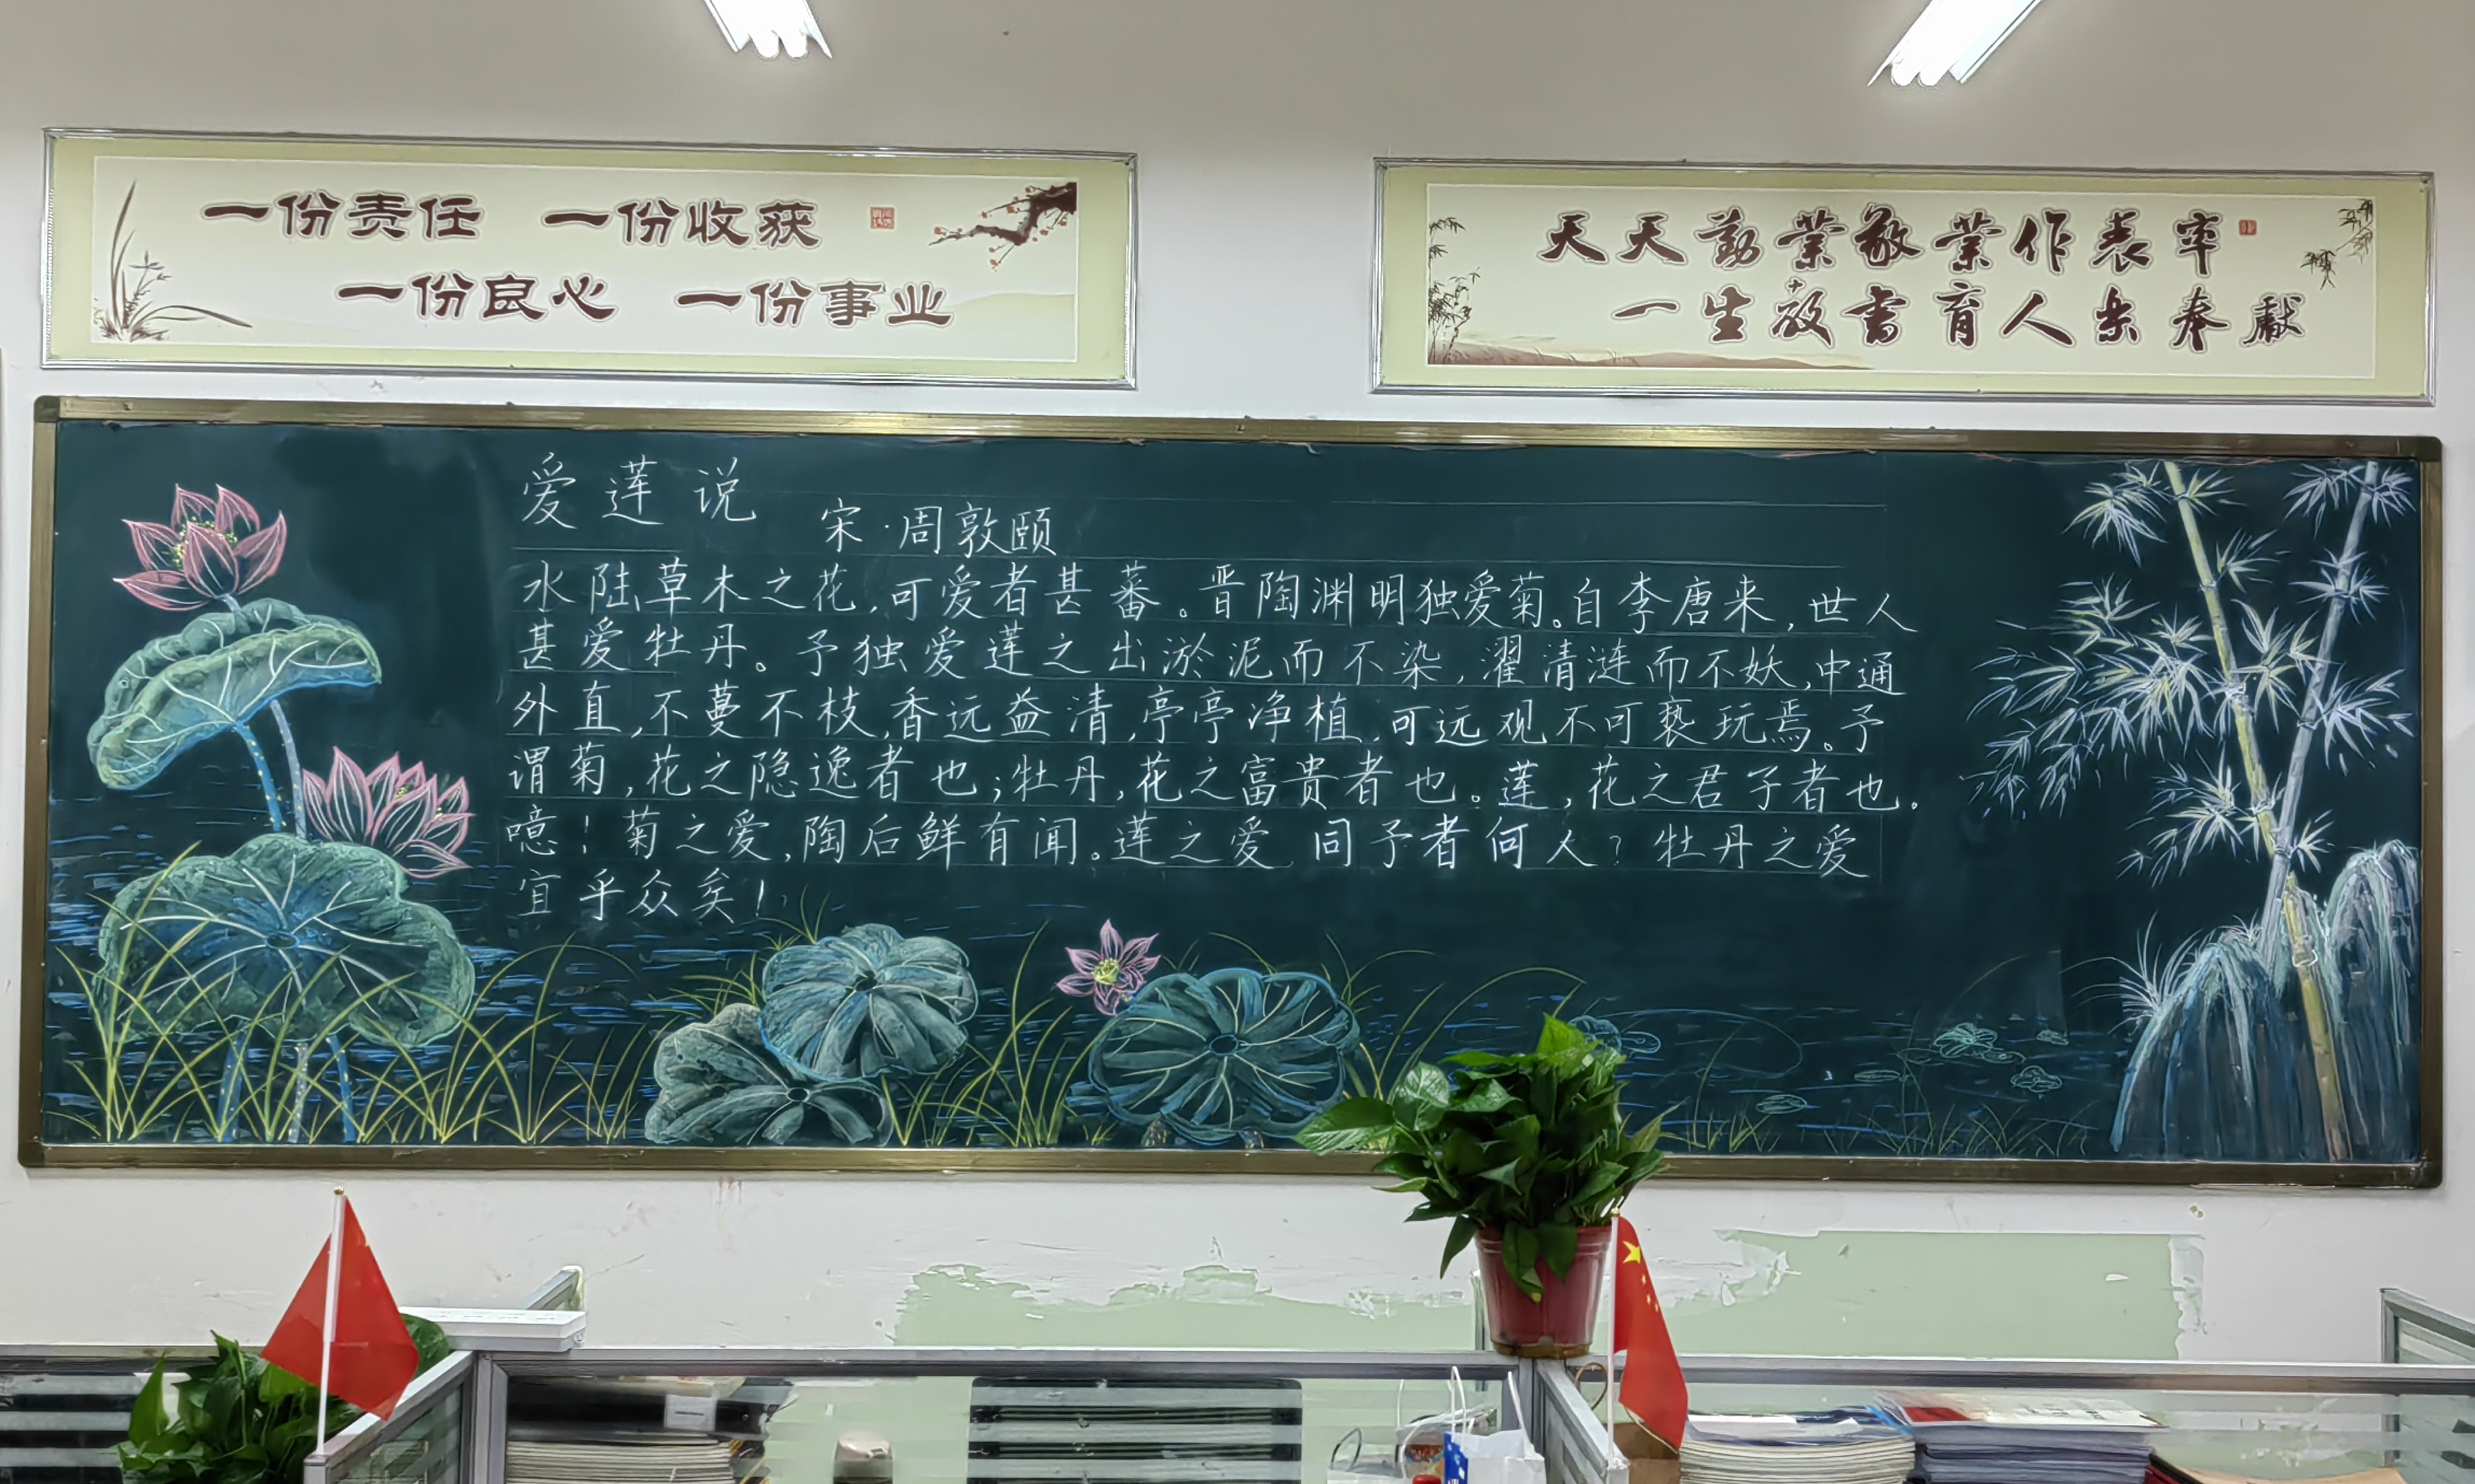 一份责任 一份收获
一份良心 一份事业
天天勤業敬業作表率
一生教書育人乐奉獻
爱莲说
宋·周敦颐
水陆草木之花,可爱者甚蕃。晋陶渊明独爱菊。自李唐来,世人
甚爱牡丹。予独爱莲之出淤泥而不染,濯清涟而不妖,中通
外直,不蔓不枝,香远益清,亭亭净植,可远观不可亵玩焉。予
谓菊,花之隐逸者也;牡丹,花之富贵者也。莲,花之君子者也。
噫!菊之爱,陶后鲜有闻。莲之爱 同予者何人?牡丹之爱
宜乎众矣!